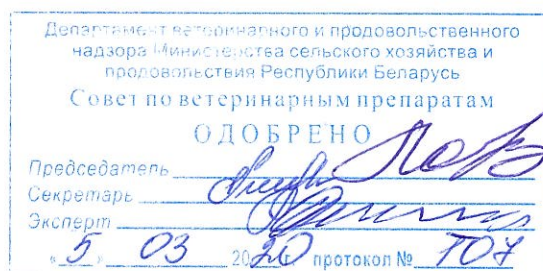 Департамент ветеринарного и продовольственного
надзора Министерства сельского хозяйства и
продовольствия Республики Беларусь
Совет по ветеринарным препаратам
ОДОБРЕНО
Председатель
Секретарь
Эксперт
«5» 03 2020 г. протокол № 107